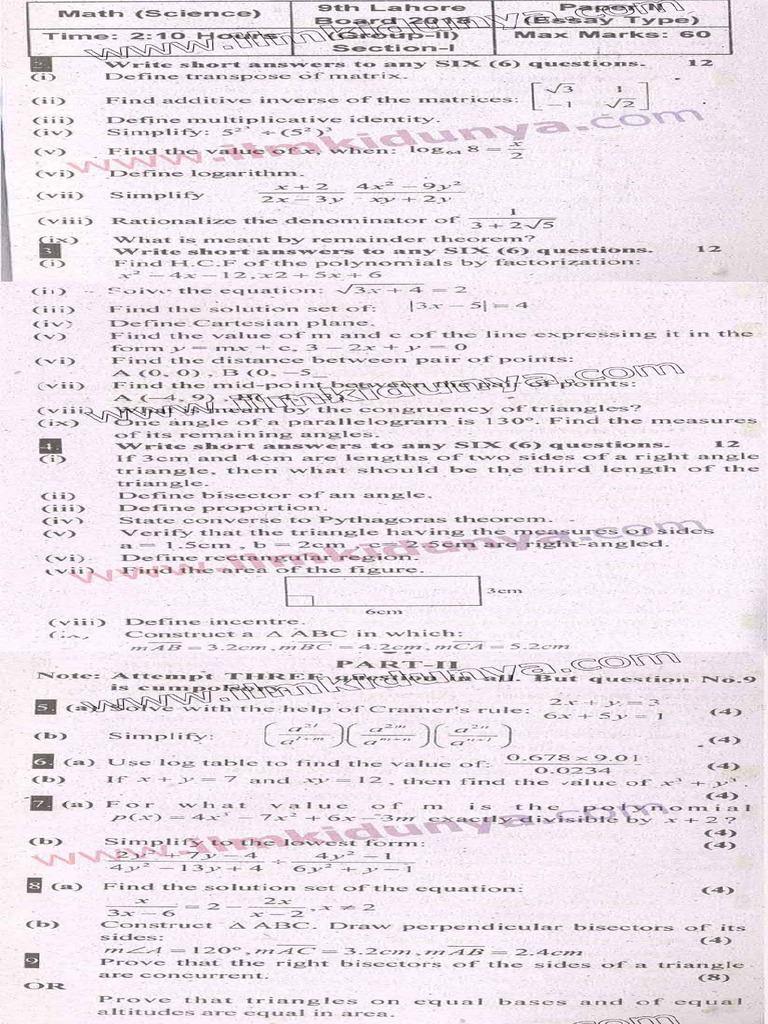 Math (Science) 9th Lahore Paper: II
Board 2015 (Essay Type)
Time: 2:10 Hours (Group-II) Max Marks: 60
Section-I
2. Write short answers to any SIX (6) questions. 12
(i) Define transpose of matrix.
(ii) Find additive inverse of the matrices: [√3 1
−1 √2]
(iii) Define multiplicative identity.
(iv) Simplify: 5^2^3 ÷ (5^2)^3
(v) Find the value of x, when: log_64 8 = x/2
(vi) Define logarithm.
(vii) Simplify (x + 2)/(2x − 3y) (4x² − 9y²)/(xy + 2y)
(viii) Rationalize the denominator of 1/(3 + 2√5)
(ix) What is meant by remainder theorem?
3. Write short answers to any SIX (6) questions. 12
(i) Find H.C.F of the polynomials by factorization:
x² − 4x − 12, x2 + 5x + 6
(ii) Solve the equation: √3x + 4 = 2
(iii) Find the solution set of: |3x − 5| = 4
(iv) Define Cartesian plane.
(v) Find the value of m and c of the line expressing it in the
form y = mx + c, 3 − 2x + y = 0
(vi) Find the distance between pair of points:
A (0, 0), B (0, −5
(vii) Find the mid-point between the pair of points:
A (−4, 9)
(viii) meant by the congruency of triangles?
(ix) One angle of a parallelogram is 130°. Find the measures
of its remaining angles.
4. Write short answers to any SIX (6) questions. 12
(i) If 3cm and 4cm are lengths of two sides of a right angle
triangle, then what should be the third length of the
triangle.
(ii) Define bisector of an angle.
(iii) Define proportion.
(iv) State converse to Pythagoras theorem.
(v) Verify that the triangle having the measures of sides
a = 1.5cm, b = 2cm, c = 2.5cm are right-angled.
(vi) Define rectangular region.
(vii) Find the area of the figure.
3cm
6cm
(viii) Define incentre.
Construct a Δ ABC in which:
mAB = 3.2cm, mBC = 4.2cm, mCA = 5.2cm
PART-II
Note: Attempt THREE question in all. But question No.9
is
5. (a) Solve with the help of Cramer's rule: 2x + y = 3
6x + 5y = 1 (4)
(b) Simplify: (a^2l/a^l+m)(a^2m/a^m+n)(a^2n/a^n+l) (4)
6. (a) Use log table to find the value of: (0.678 × 9.01)/0.0234 (4)
(b) If x + y = 7 and xy = 12, then find the value of x³ + y³.
(4)
7. (a) For what value of m is the polynomial
p(x) = 4x³ − 7x² + 6x − 3m exactly divisible by x + 2?
(4)
(b) Simplify to the lowest form: (4)
(2y² + 7y − 4)/(4y² − 13y + 4) ÷ (4y² − 1)/(6y² + y − 1)
8 (a) Find the solution set of the equation: (4)
x/(3x − 6) = 2 − 2x/(x − 2), x ≠ 2
(b) Construct Δ ABC. Draw perpendicular bisectors of its
sides: (4)
m∠A = 120°, mAC = 3.2cm, mAB = 2.4cm
9 Prove that the right bisectors of the sides of a triangle
are concurrent. (8)
OR
Prove that triangles on equal bases and of equal
altitudes are equal in area.
www.ilmkidunya.com